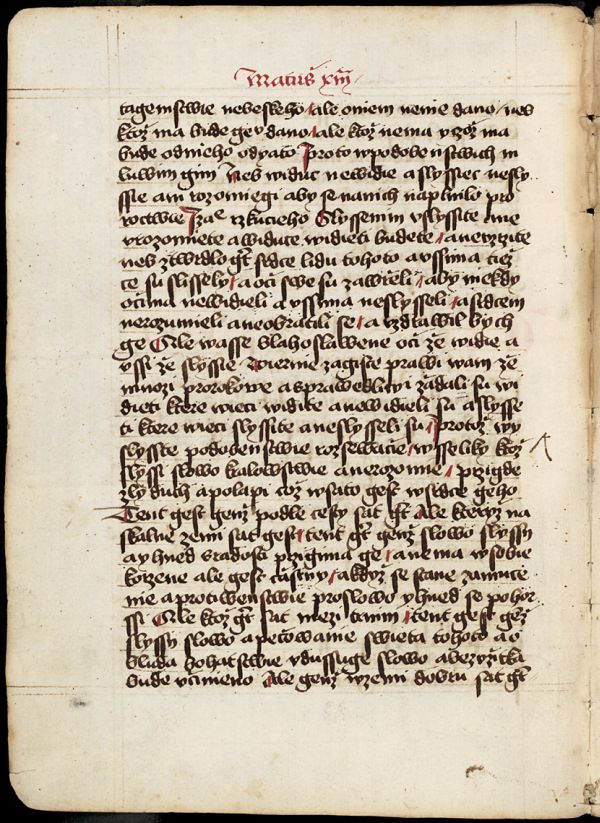 Matus xiij
tagemstwie nebeskeho / ale oniem nenie dano / neb
ktoz ma bude geᵛ dano / ale ktoz nema y toz ma
bude odnieho odyato Proto wpodobenstwich m
luwim gim Neb widuc newidie a slyssiec neslẏ
ssie ani rozomiegi aby se nanich naplnilo pro
roctwie Izaᵉ rzkucieho Slyssenim vslyssite a ne
vrozomiete a widuce widieti budete / a nevzrzite
neb ztwrdlo gt̄ srdce lidu tohoto a vssima tiez
ce su slisseli / a oci swe su zawrzeli / aby niekdy
ocima newidieli a vssima neslysseli / a srdcem
nerozumieli a neobratili se / a vzdrawil bych
ge Ale wasse blahoslawene oci ze widie a
vssi ze slyssie / wiernie zagiste prawi wam ze
mnozi prorokowe a sprawedliwi zadali su wi
dieti ktere wieci widite a newidieli su a slysse
ti ktere wieci slyssite a neslysseli su / protoz wy
slysste podobenstwie rozsewacie / wsseliky ktoz
slyssi slowo kralowstwie a nerozomie / przigde
zly duch a polapi coz wsato gest wsrdce geho
Tent gest genz podle cesty sat gt̄ Ale kteryz na
skalne zemi sat gest / tent gt̄ genz slowo slyssy
a yhned sradosti przigima ge / a nema wsobie
korzene ale gest casny / a kdyz se stane zamuce
nie a protiwenstwie proslowo yhned se pohor
ssi Ale ktoz gt̄ sat mezi trnim / tent gest genz
slyssy slowo a peczowanie swieta tohoto a o
bluda bohatstwie vdussuge slowo a bezvzitka
bude vcinieno Ale genz wzemi dobru sat gt̄